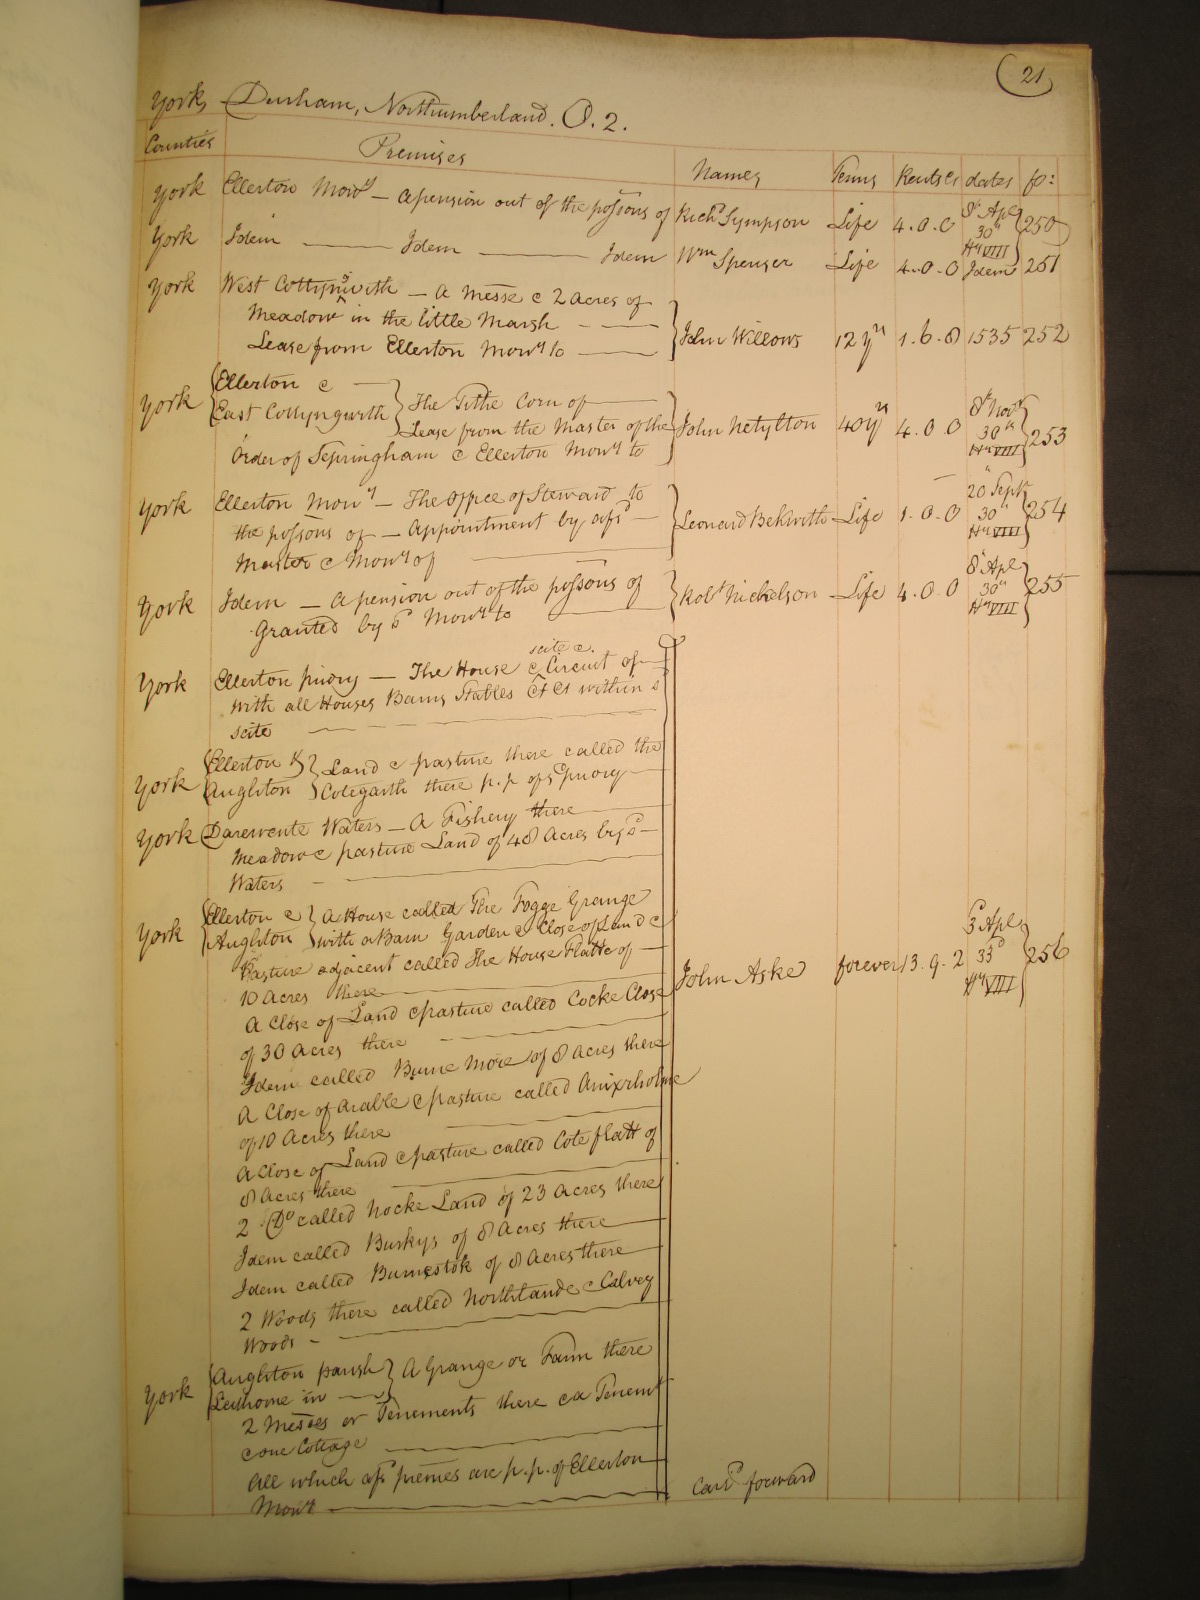 21
York, Durham, Northumberland. O. 2.
Counties Premises Names Terms Rents &c dates fo:
York Ellerton Mon^y — a pension out of the possons of Rich^d Sympson Life 4. 0. 0 8^th Apl 30^th H^y VIII 250
York Idem — Idem — Idem W^m Spenser Life 4. 0. 0 Idem 251
York West Cottyngwith — a Messe & 2 acres of
Meadow in the little Marsh —
Lease from Ellerton Mon^y to — John Willows 12 y^rs 1. 6. 8 1535 252
York Ellerton & —
East Cottyngwith The Tithe Corn of —
Lease from the Master of the John Netylton 40 y^rs 4. 0. 0 8^th Nov^r 30^th H^y VIII 253
Order of Sepringham & Ellerton Mon^y to
York Ellerton Mon^y — The Office of Steward to
the possons of — Appointment by afs^d — Leonard Bekwith Life 1. 0. 0 20^th Sept^r 30^th H^y VIII 254
Master & Mon^y of —
York Idem — a pension out of the possons of
Granted by s^d Mon^y to — Rob^t Nickelson Life 4. 0. 0 8^th Apl 30^th H^y VIII 255
scite &
York Ellerton priory — The House & Circuit of —
with all Houses Barns Stables &c &c within s^d
scite —
York Ellerton & Aughton Land & pasture there called the
Cotegarth there p.p of s^d priory —
York Darewente Waters — A Fishery there —
Meadow & pasture Land of 48 Acres by s^d —
Waters —
York Ellerton & Aughton A House called The Fogge Grange
with a Barn Garden & Close of Land &
Pasture adjacent called The House Flatte of —
10 Acres there — John Aske forever 13. 9. 2 3^d Apl 33^d H^y VIII 256
A Close of Land & pasture called Cocke Close
of 30 Acres there —
Idem called Burne More of 8 Acres there
A Close of Arable & pasture called
of 10 Acres there —
A Close of Land & pasture called Cote flatt of
8 Acres there —
2 D^o called Nocke Land of 23 Acres there
Idem called Burkys of 8 Acres there —
Idem called Burnestok of 8 Acres there —
2 Woods there called Northlande & Calvey
Woods —
York Aughton parish
Leithome in — A Grange or Farm there
2 Messes or Tenements there & a Tenem^t
& one Cottage —
All which afs^d premes are p.p. of Ellerton —
Mon^y — Car^d forward